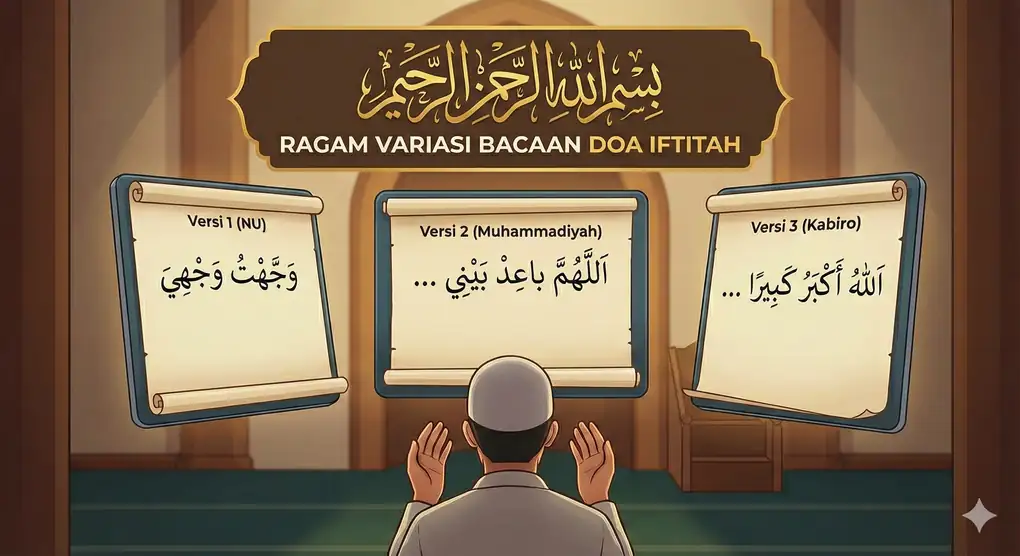 بِسْمِ اللهِ الرَّحْمٰنِ الرَّحِيْمِ
RAGAM VARIASI BACAAN DOA IFTITAH
Versi 1 (NU)
وَجَّهْتُ وَجْهِيَ
Versi 2 (Muhammadiyah)
اَللَّهُمَّ باعِدْ بَيْنِي ...
Versi 3 (Kabiro)
اَللهُ أَكْبَرُ كَبِيرًا ...